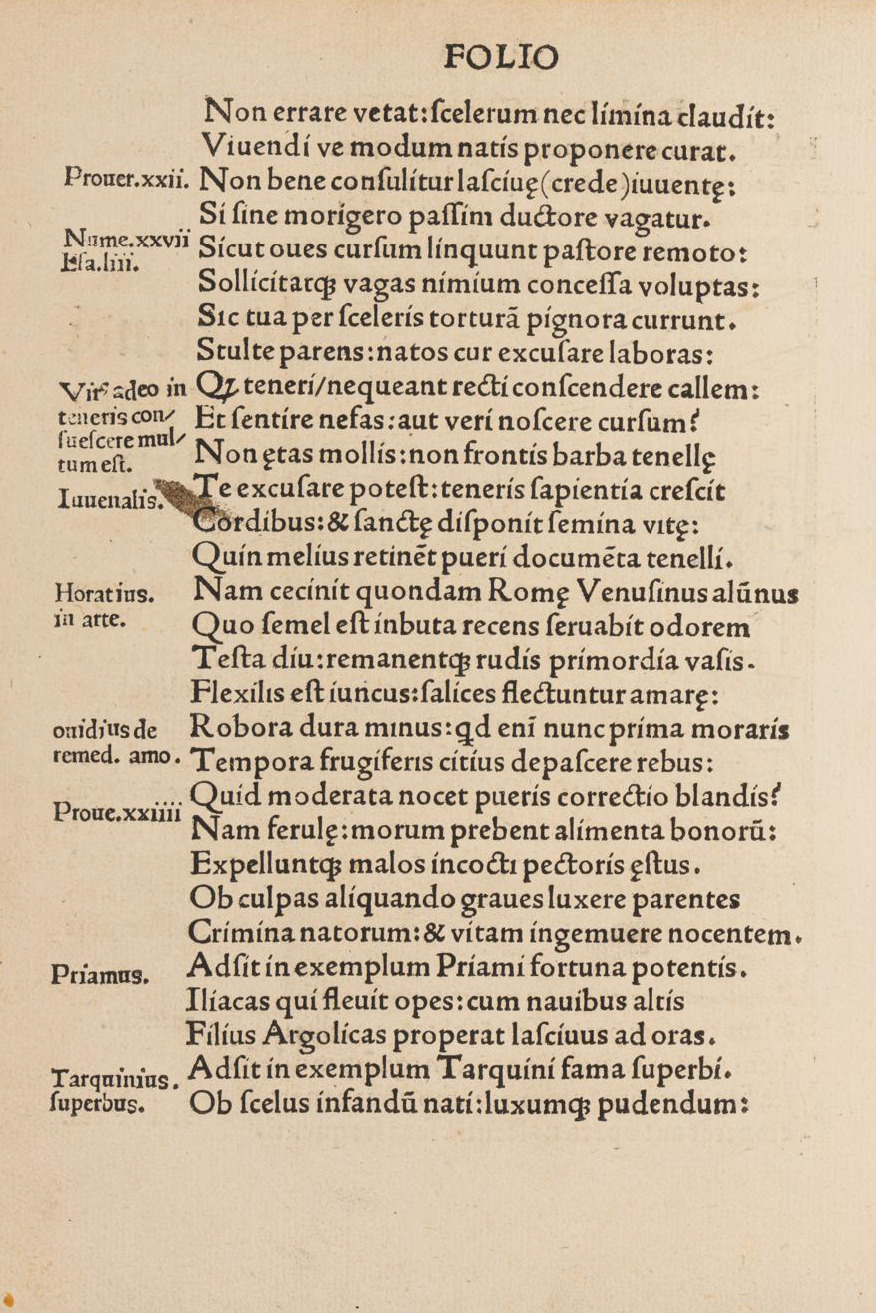 FOLIO
Non errare vetat:ſcelerum nec límína claudít:
Víuendí ve modum natís proponere curat.
Prouer.xxii. Non bene conſulítur laſcíuę(crede)iuuentę:
Sí ſine morígero paſſím ductore vagatur.
Nume.xxvii Sícut oues curſum línquunt paſtore remoto:
Eſa.liii. Sollícítatqꝫ vagas nímíum conceſſa voluptas:
Sic tua per ſcelerís torturã pígnora currunt.
Stulte parens:natos cur excuſare laboras:
adeo in Qꝫ tenerí/nequeant rectí conſcendere callem:
teneris con/ Et ſentíre nefas:aut verí noſcere curſum?
ſueſcere mul/
tum eſt. Non ętas mollís:non frontís barba tenellę
Iuuenalis. Te excuſare poteſt:tenerís ſapíentía creſcít
Cordibus:& ſanctę díſponít ſemína vitę:
Quín melíus retinẽt puerí documẽta tenellí.
Horatius. Nam cecínít quondam Romę Venuſinus alũnus
in arte. Quo ſemel eſt ínbuta recens ſeruabít odorem
Teſta díu:remanentqꝫ rudís prímordía vaſis.
Flexilis eſt íuncus:ſalíces flectuntur amarę:
ouidius de Robora dura minus:qd ení nunc príma morarís
remed. amo. Tempora frugíferis cítíus depaſcere rebus:
Proue.xxiiii Quíd moderata nocet puerís correctio blandís?
Nam ferulę:morum prebent alímenta bonorũ:
Expelluntqꝫ malos íncocti pectorís ęſtus.
Ob culpas alíquando graues luxere parentes
Crímína natorum:& vítam íngemuere nocentem.
Priamus. Adſit ín exemplum Príamí fortuna potentís.
Ilíacas quí fleuít opes:cum nauíbus altís
Fílíus Argolícas properat laſcíuus ad oras.
Tarquinius. Adſit ín exemplum Tarquíní fama ſuperbí.
ſuperbus. Ob ſcelus ínfandũ natí:luxumqꝫ pudendum: